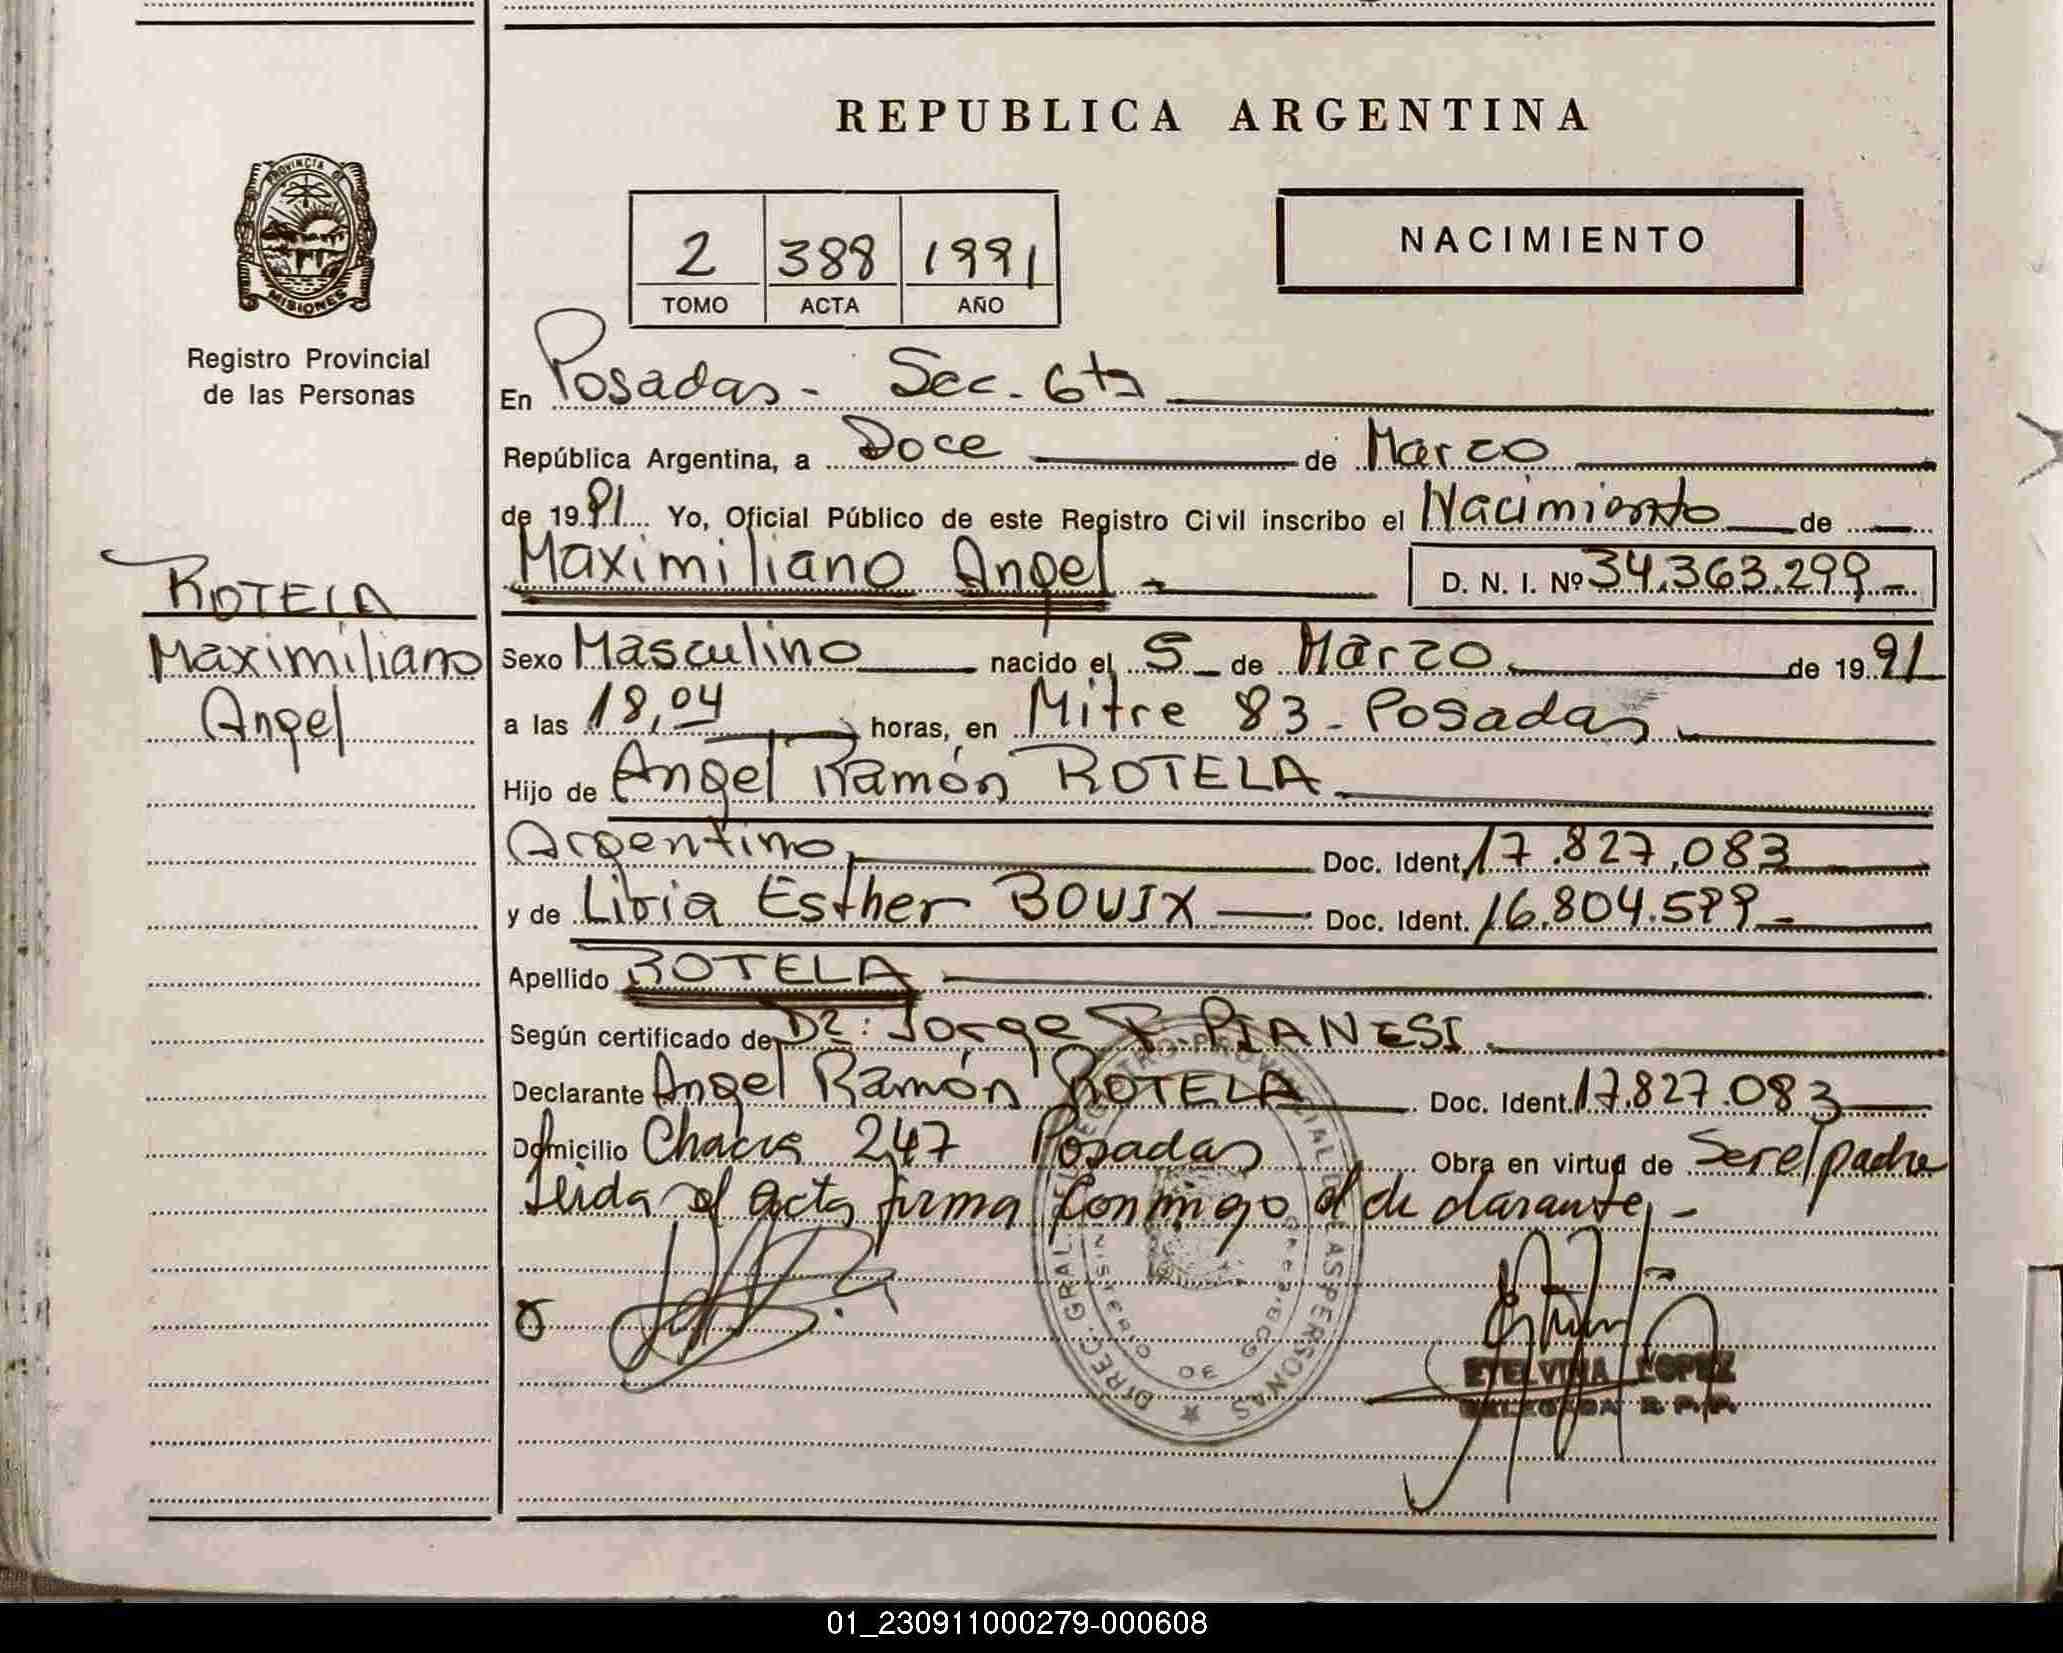 REPUBLICA ARGENTINA
PROVINCIA DE
MISIONES
Registro Provincial
de las Personas
2 388 1991
TOMO ACTA AÑO
NACIMIENTO
En Posadas - Sec. 6ta
República Argentina, a Doce de Marzo
de 1991 Yo, Oficial Público de este Registro Civil inscribo el Nacimiento de
Maximiliano Angel D. N. I. Nº 34.363.299-
ROTELA
Maximiliano
Angel
Sexo Masculino nacido el 5 de Marzo de 1991
a las 18,04 horas, en Mitre 83 - Posadas
Hijo de Angel Ramón ROTELA
Argentino Doc. Ident. 17.827.083
y de Liria Esther BOUIX Doc. Ident. 16.804.599-
Apellido ROTELA
Según certificado de Dr: Jorge PIANESI
Declarante Angel Ramón ROTELA Doc. Ident. 17.827.083
Domicilio Chacra 247 Posadas Obra en virtud de Ser el padre
Leida el acta firma conmigo el declarante, -
DIREC. GRAL. REGISTRO PROVINCIAL DE LAS PERSONAS
MINISTERIO DE GOBIERNO
ETELVINA LOPEZ
DELEGADA R. P. P.
01_230911000279-000608